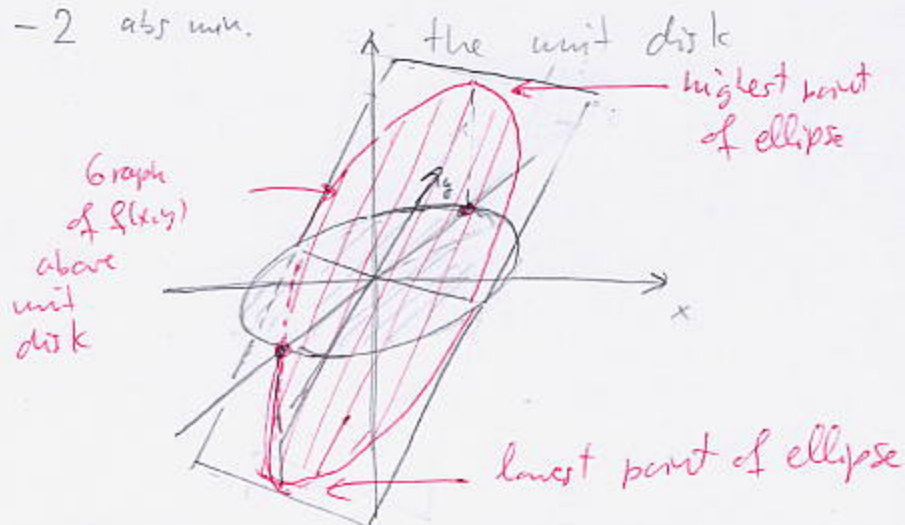 -2 abs min.
the unit disk
highest point
of ellipse
Graph
of f(x,y)
above
unit
disk
y
x
lowest point of ellipse